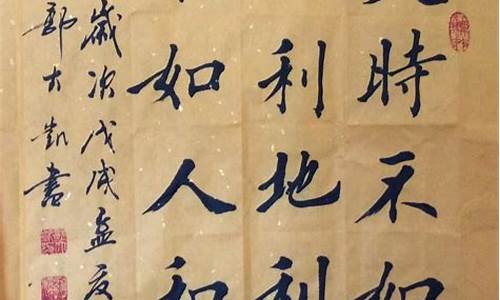 天時不如
地利地利
不如人和
歲次戊戌孟夏
郭大凱書